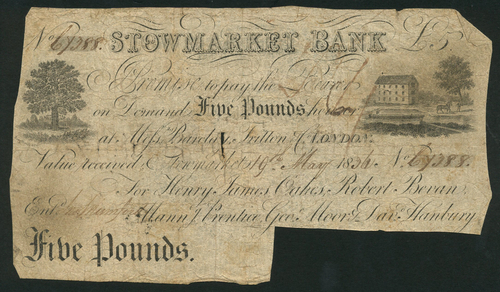 No. 67388. STOWMARKET BANK £5
I Promise to pay the Bearer
on Demand Five Pounds, here or
at Mess. Barclay, Tritton & Co. LONDON.
Value received, Stowmarket 19th May 1834. No. 67388.
For Henry James Oakes, Robert Bevan,
Entd. Mann, Prentice, Geo. Moor & Dan. Hanbury
Five Pounds.